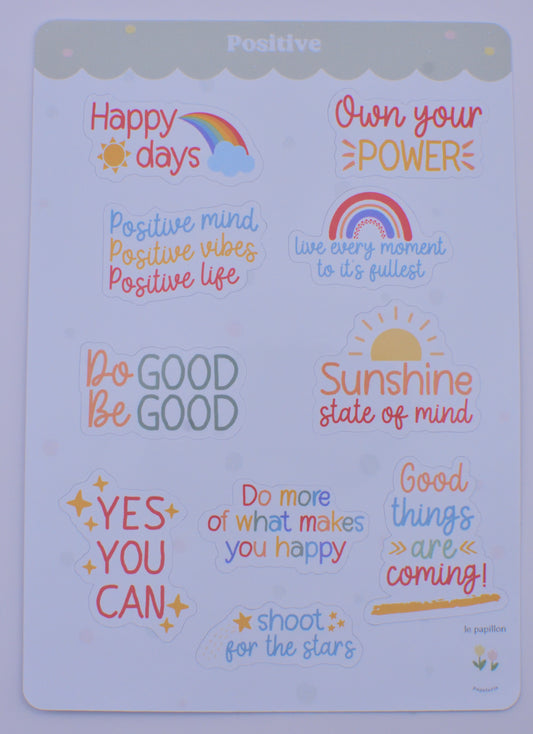 Positive
Happy
days
Own your
POWER
Positive mind
Positive vibes
Positive life
live every moment
to it's fullest
Do GOOD
Be GOOD
Sunshine
state of mind
YES
YOU
CAN
Do more
of what makes
you happy
Good
things
are
coming!
shoot
for the stars
le papillon
papeterie